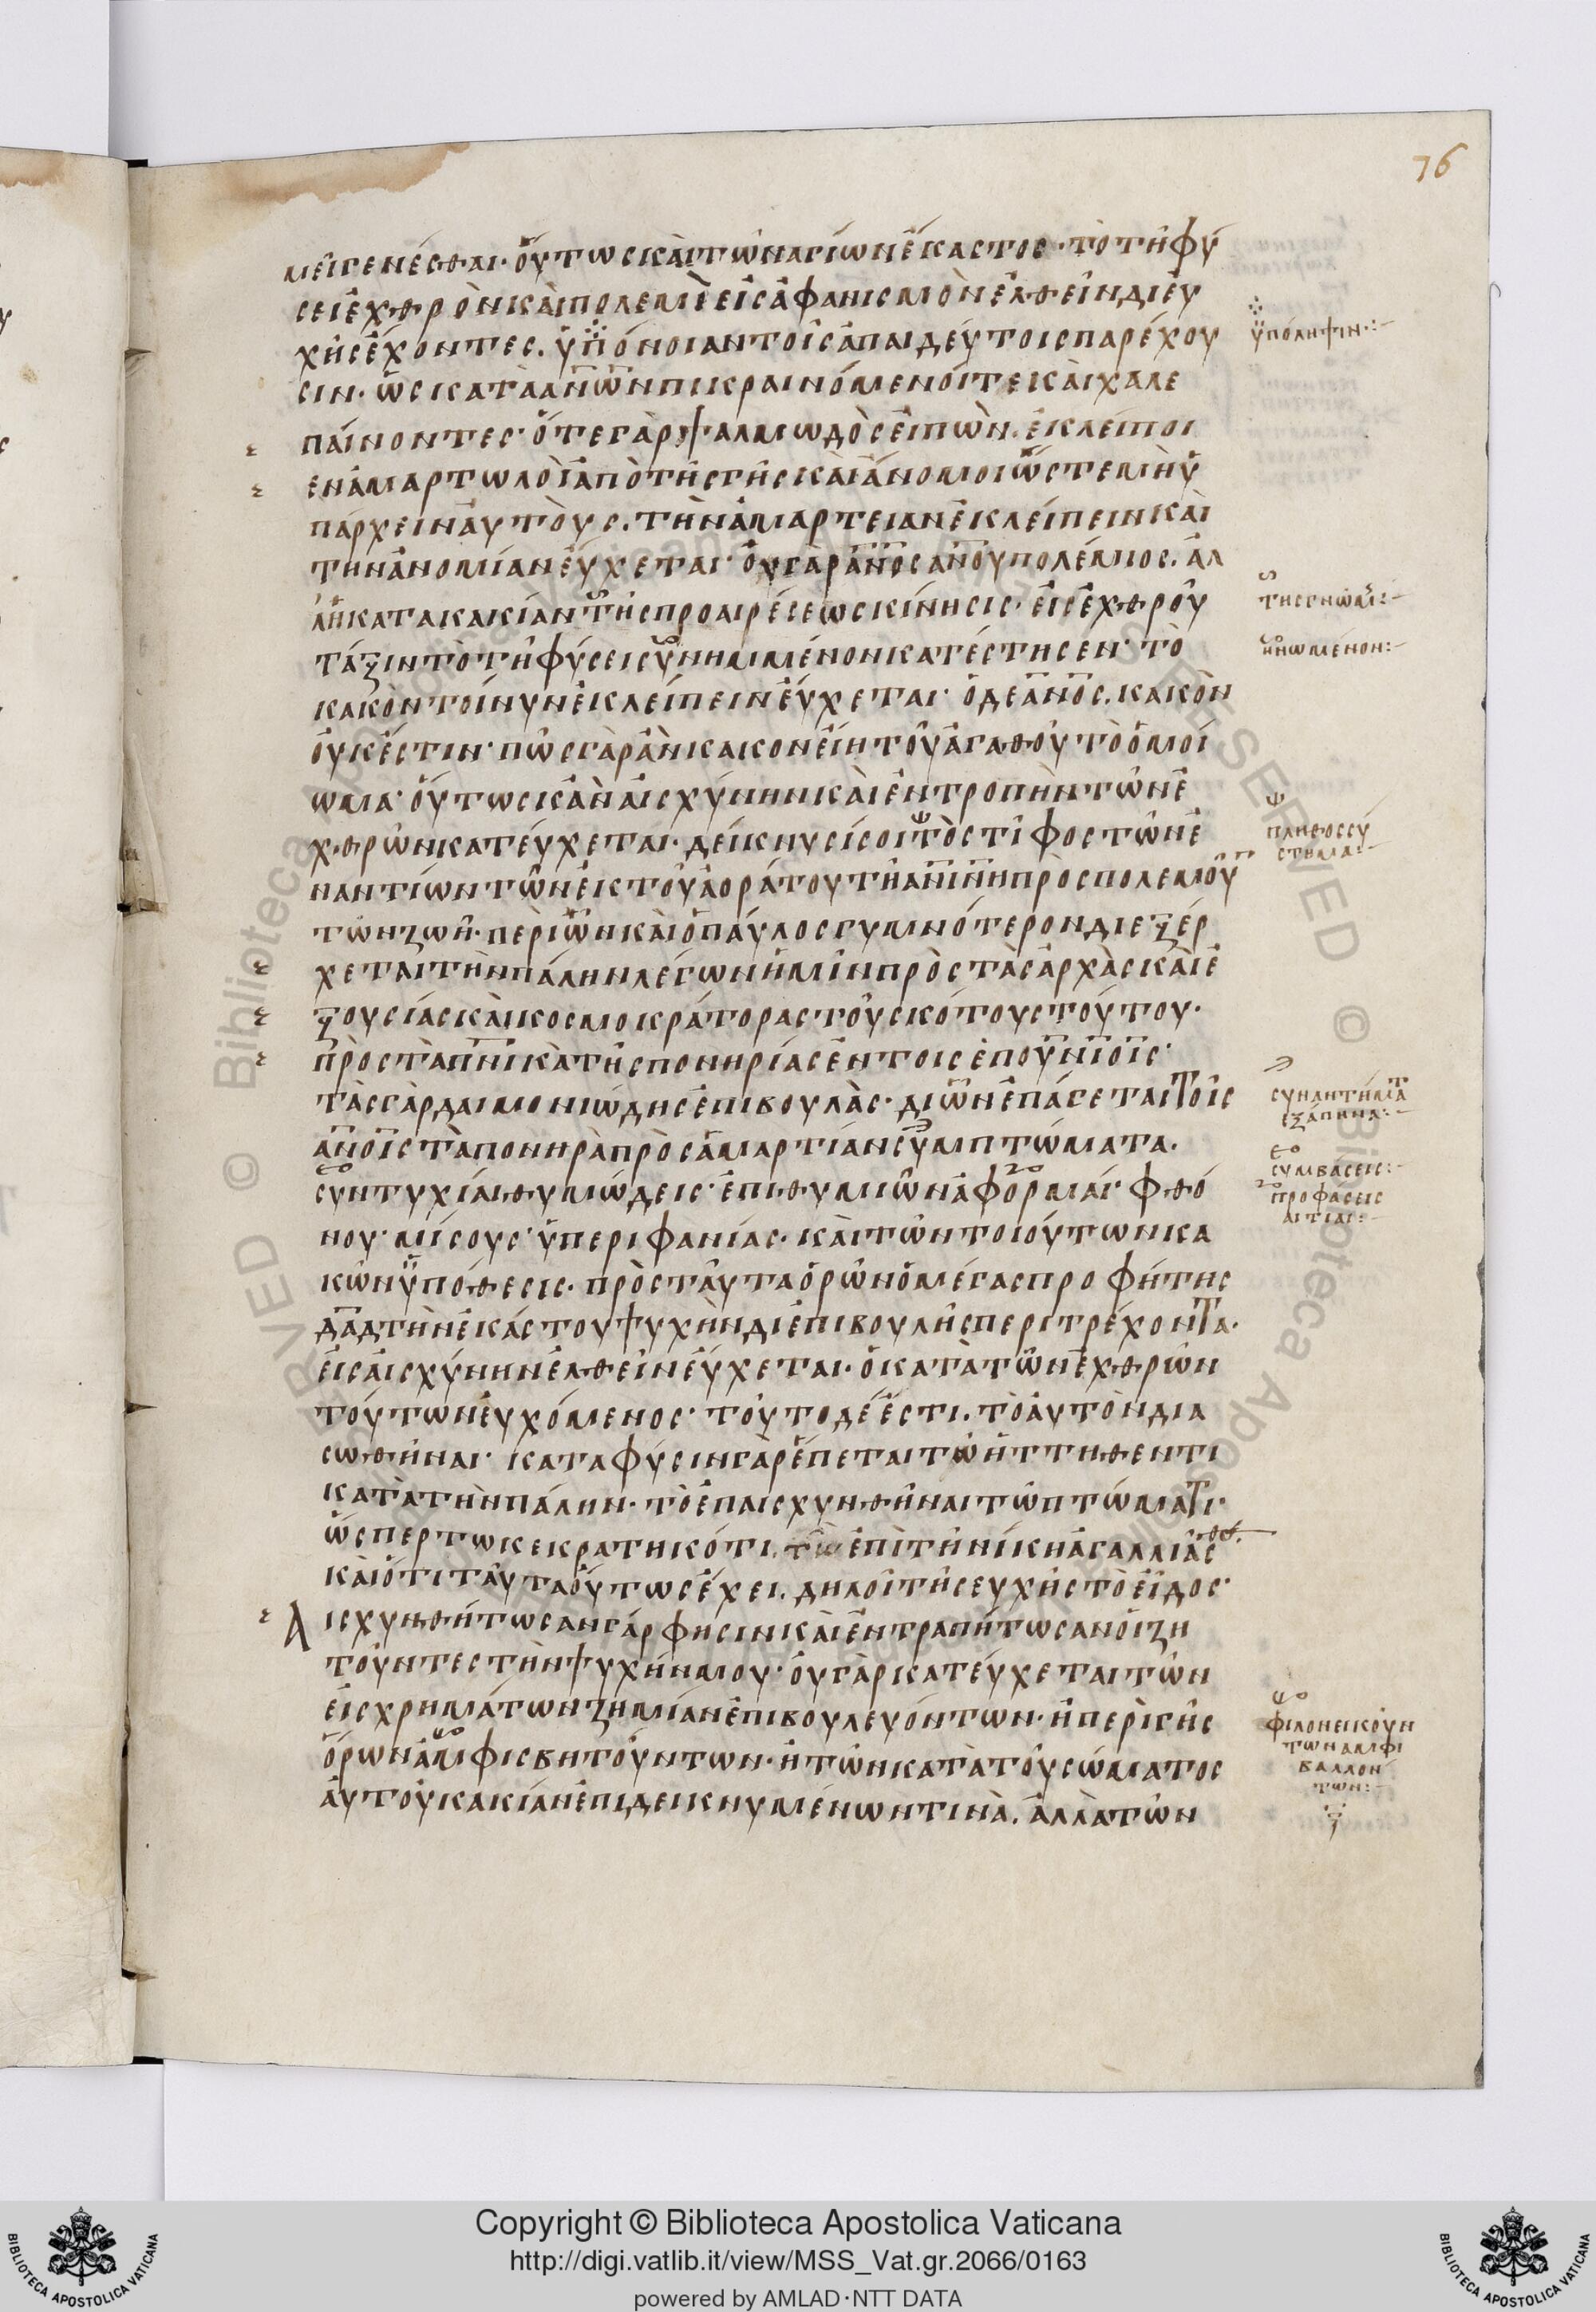 76
μεῖ γενέσθαι· οὕτως καὶ τῶν ἁγίων ἕκαστος· τὸ τῇ φύ
σει ἐχθρὸν καὶ πολέμιον εἰς ἀφανισμὸν ἐλθεῖν δι εὐ
χῆς ἔχοντες. ὑπόνοιαν τοῖς ἀπαιδεύτοις παρέχου
σιν· ὡς κατὰ ἀνων πικραινόμενοί τε καὶ χαλε
παίνοντες· ὅτε γὰρ ψαλμωδὸς εἰπὼν. ἐκλείποι
εν ἁμαρτωλοὶ ἀπὸ τῆς γῆς καὶ ἄνομοι ὥστε μὴ ὑ
πάρχειν αὐτοὺς. τὴν ἁμαρτειαν ἐκλείπειν καὶ
την ἀνομίαν εὔχεται· οὐ γὰρ ἀνος ανου πολέμιος. ἀλ
λ ἡ κατα κακίαν τῆς προαιρέσεως κίνησις· εἰς ἐχθροῦ
τάξιν τὸ τῇ φύσει συνημμένον κατέστησεν· τὸ
κακὸν τοίνυν ἐκλείπειν εὔχεται· ὁ δε ἀνος. κακὸν
οὐκ ἔστιν· πῶς γὰρ ἂν κακον εἴη τοῦ ἀγαθοῦ τὸ ὁμοί
ωμα· οὕτως κἂν αἰσχύνην καὶ ἐντροπὴν τῶν ἐ
χθρῶν κατεύχεται· δείκνυσί σοι τὸ στῖφος τῶν ἐ
ναντίων τῶν ἐκ τοῦ ἀοράτου τῇ ἀνινη προσπολεμού
των ζωῇ· περὶ ὧν καὶ ὁ παύλος γυμνότερον διεξέρ
χεται τὴν πάλην λέγων ἡμῖν πρὸς τὰς ἀρχὰς καὶ ἐ
ξουσίας καὶ κοσμοκράτορας τοῦ σκότους τούτου·
πρὸς τὰ πνικὰ τῆς πονηρίας ἐν τοις ἐπουνιοῖς·
τὰς γὰρ δαιμονιώδης ἐπιβουλὰς· δι ὧν ἐπάγεται τοῖς
ἀνοις τὰ πονηρὰ πρὸς ἁμαρτιάν συμπτώματα.
συντυχίαι θυμώδεις· ἐπιθυμιῶν ἀφορμαί· φθό
νου· μίσους· ὑπεριφανίας· καὶ τῶν τοιούτων κα
κῶν ὑπόθεσις· πρὸς ταῦτα ὁρῶν ὁ μέγας προφήτης
δαδ τὴν ἑκάστου ψυχὴν δι ἐπιβουλῆς περιτρέχοντα·
εἰς αἰσχύνην ἐλθεῖν εὔχεται· ὁ κατὰ τῶν ἐχθρῶν
τούτων εὐχόμενος· τοῦτο δέ ἐστι. τὸ αὐτὸν δια
σωθῆναι· κατα φύσιν γὰρ ἕπεται τῶ ἡττηθεντι
κατὰ τὴν πάλην· τὸ ἐπαισχυνθῆναι τῶ πτώματι·
ὥσπερ τω κεκρατηκότι. τῶ ἐπὶ τῇ νίκη ἀγαλλιᾶσθαι·
καὶ ὅτι ταῦτα οὕτως ἔχει. δηλοῖ τῆς ευχῆς τὸ εἶδος·
Αισχυνθήτωσαν γάρ φησιν καὶ ἐντραπήτωσαν οἱ ζη
τοῦντες τὴν ψυχήν μου· οὐ γὰρ κατεύχεται τῶν
εἰς χρημάτων ζημίαν ἐπιβουλευόντων· ἢ περὶ γῆς
ὅρων ἀμφισβητούντων· ἢ τῶν κατὰ τοῦ σώματος
αὐτοῦ κακίαν ἐπιδεικνυμένων τινὰ. ἀλλὰ τῶν
ὑπόληψιν:
τῆς γνώμ:
ἡνωμένον:
πλῆθος σύ
στημα:
συναντήματα
ἐξάπινα:
συμβάσεις:
προφάσεις
αιτίαι:
φιλονεικούν
των αμφι
βαλλόν
των:
Copyright © Biblioteca Apostolica Vaticana
http://digi.vatlib.it/view/MSS_Vat.gr.2066/0163
powered by AMLAD·NTT DATA
BIBLIOTECA APOSTOLICA VATICANA
BIBLIOTECA APOSTOLICA VATICANA